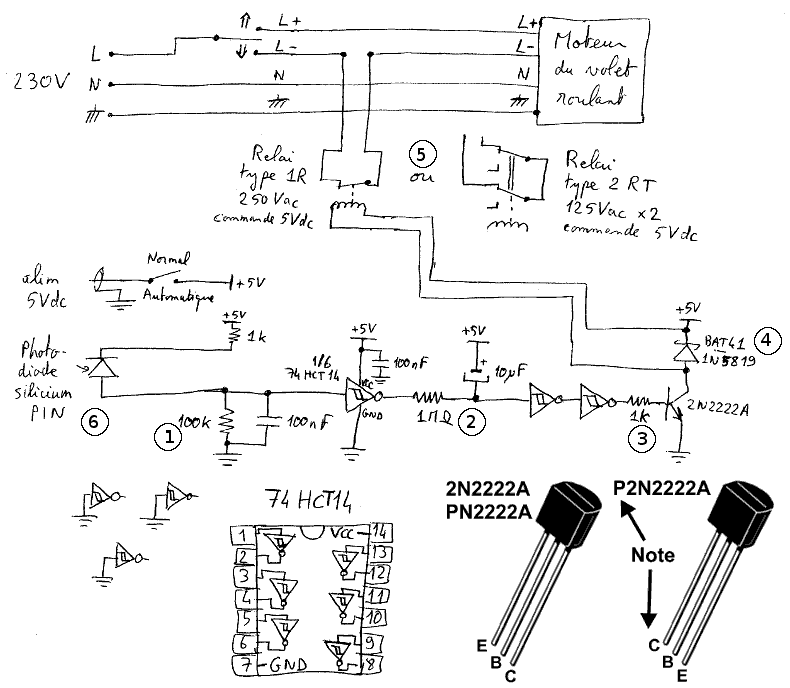 ⇑ L+ L+
L ⇓ L- L-
230V N N N
Moteur
du volet
roulant
Relai
type 1R
250Vac
commande 5Vdc
5
ou
Relai
type 2 RT
125Vac x2
commande 5Vdc
alim
5Vdc
Normal
Automatique
+5V
+5V
1k
Photo-
diode
silicium
PIN
6
1
100k
100nF
1/6
74HCT14
+5V
VCC
GND
100nF
1MΩ
+5V
+
10µF
2
1k
3
2N2222A
+5V
BAT41
1N5819
4
74 HCT14
1 VCC 14
2 13
3 12
4 11
5 10
6 9
7 GND 8
2N2222A
PN2222A
P2N2222A
Note
E
B
C
C
B
E